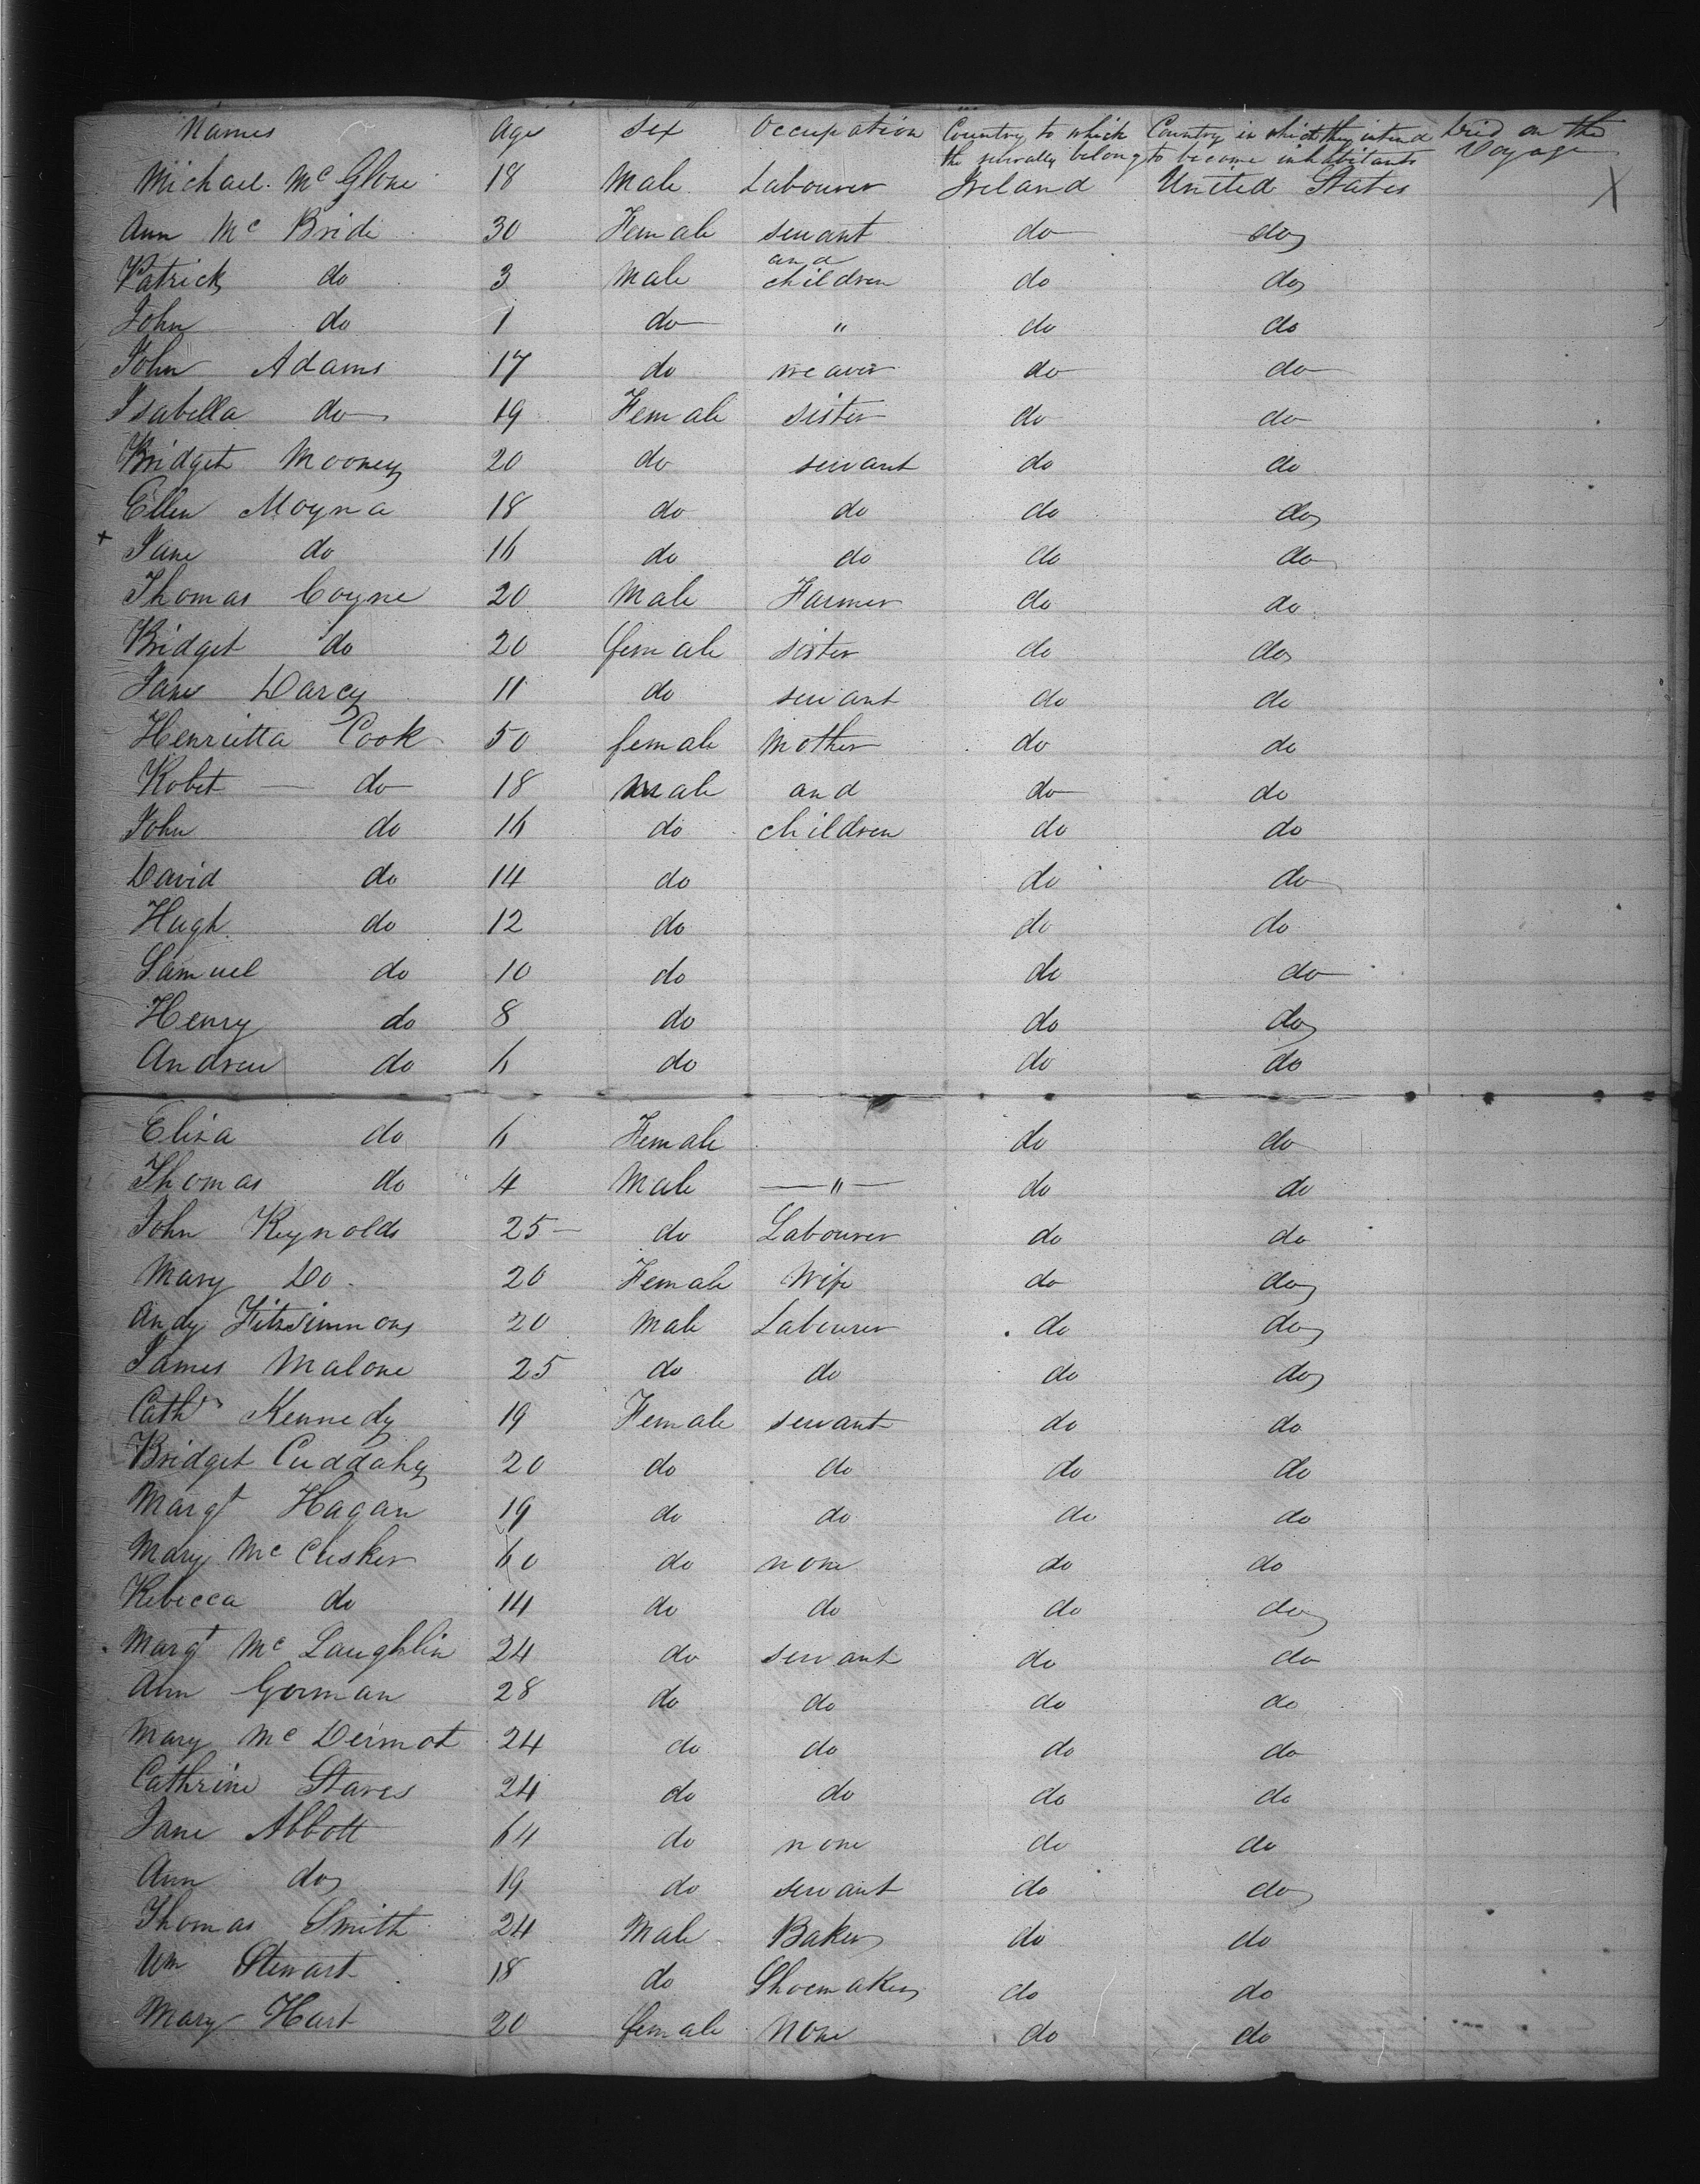 Names Age Sex Occupation Country to which Country in which they intend Died on the
the severally belong to become inhabitants Voyage
Michael McGlone 18 Male Labourer Ireland United States X
Ann McBride 30 Female servant do do
and
Patrick do 3 Male children do do
John do 1 do " do do
John Adams 17 do weaver do do
Isabella do 19 Female sister do do
Bridget Mooney 20 do servant do do
Ellen Moyna 18 do do do do
x Jane do 16 do do do do
Thomas Coyne 20 Male Farmer do do
Bridget do 20 female sister do do
Jane Darcy 11 do servant do do
Henrietta Cook 50 female Mother do do
Robet — do 18 male and do do
John do 16 do children do do
David do 14 do do do
Hugh do 12 do do do
Samuel do 10 do do do
Henry do 8 do do do
Andrew do 6 do do do
Eliza do 6 Female do do
Thomas do 4 Male — " — do do
John Reynolds 25 — do Labourer do do
Mary Do. 20 Female Wife do do
Andy Fitzsimmons 20 Male Labourer do do
James Malone 25 do do do do
Cathn Kennedy 19 Female servant do do
Bridget Cuddahy 20 do do do do
Margt Hagan 19 do do do do
Mary McCusker 60 do none do do
Rebecca do 14 do do do do
Margt McLaughlin 24 do servant do do
Ann Gorman 28 do do do do
Mary McDermot 24 do do do do
Cathrine Stares 24 do do do do
Jane Abbott 64 do none do do
Ann do 19 do servant do do
Thomas Smith 24 Male Baker do do
Wm Stewart 18 do Shoemaker do do
Mary Hart 20 female None do do